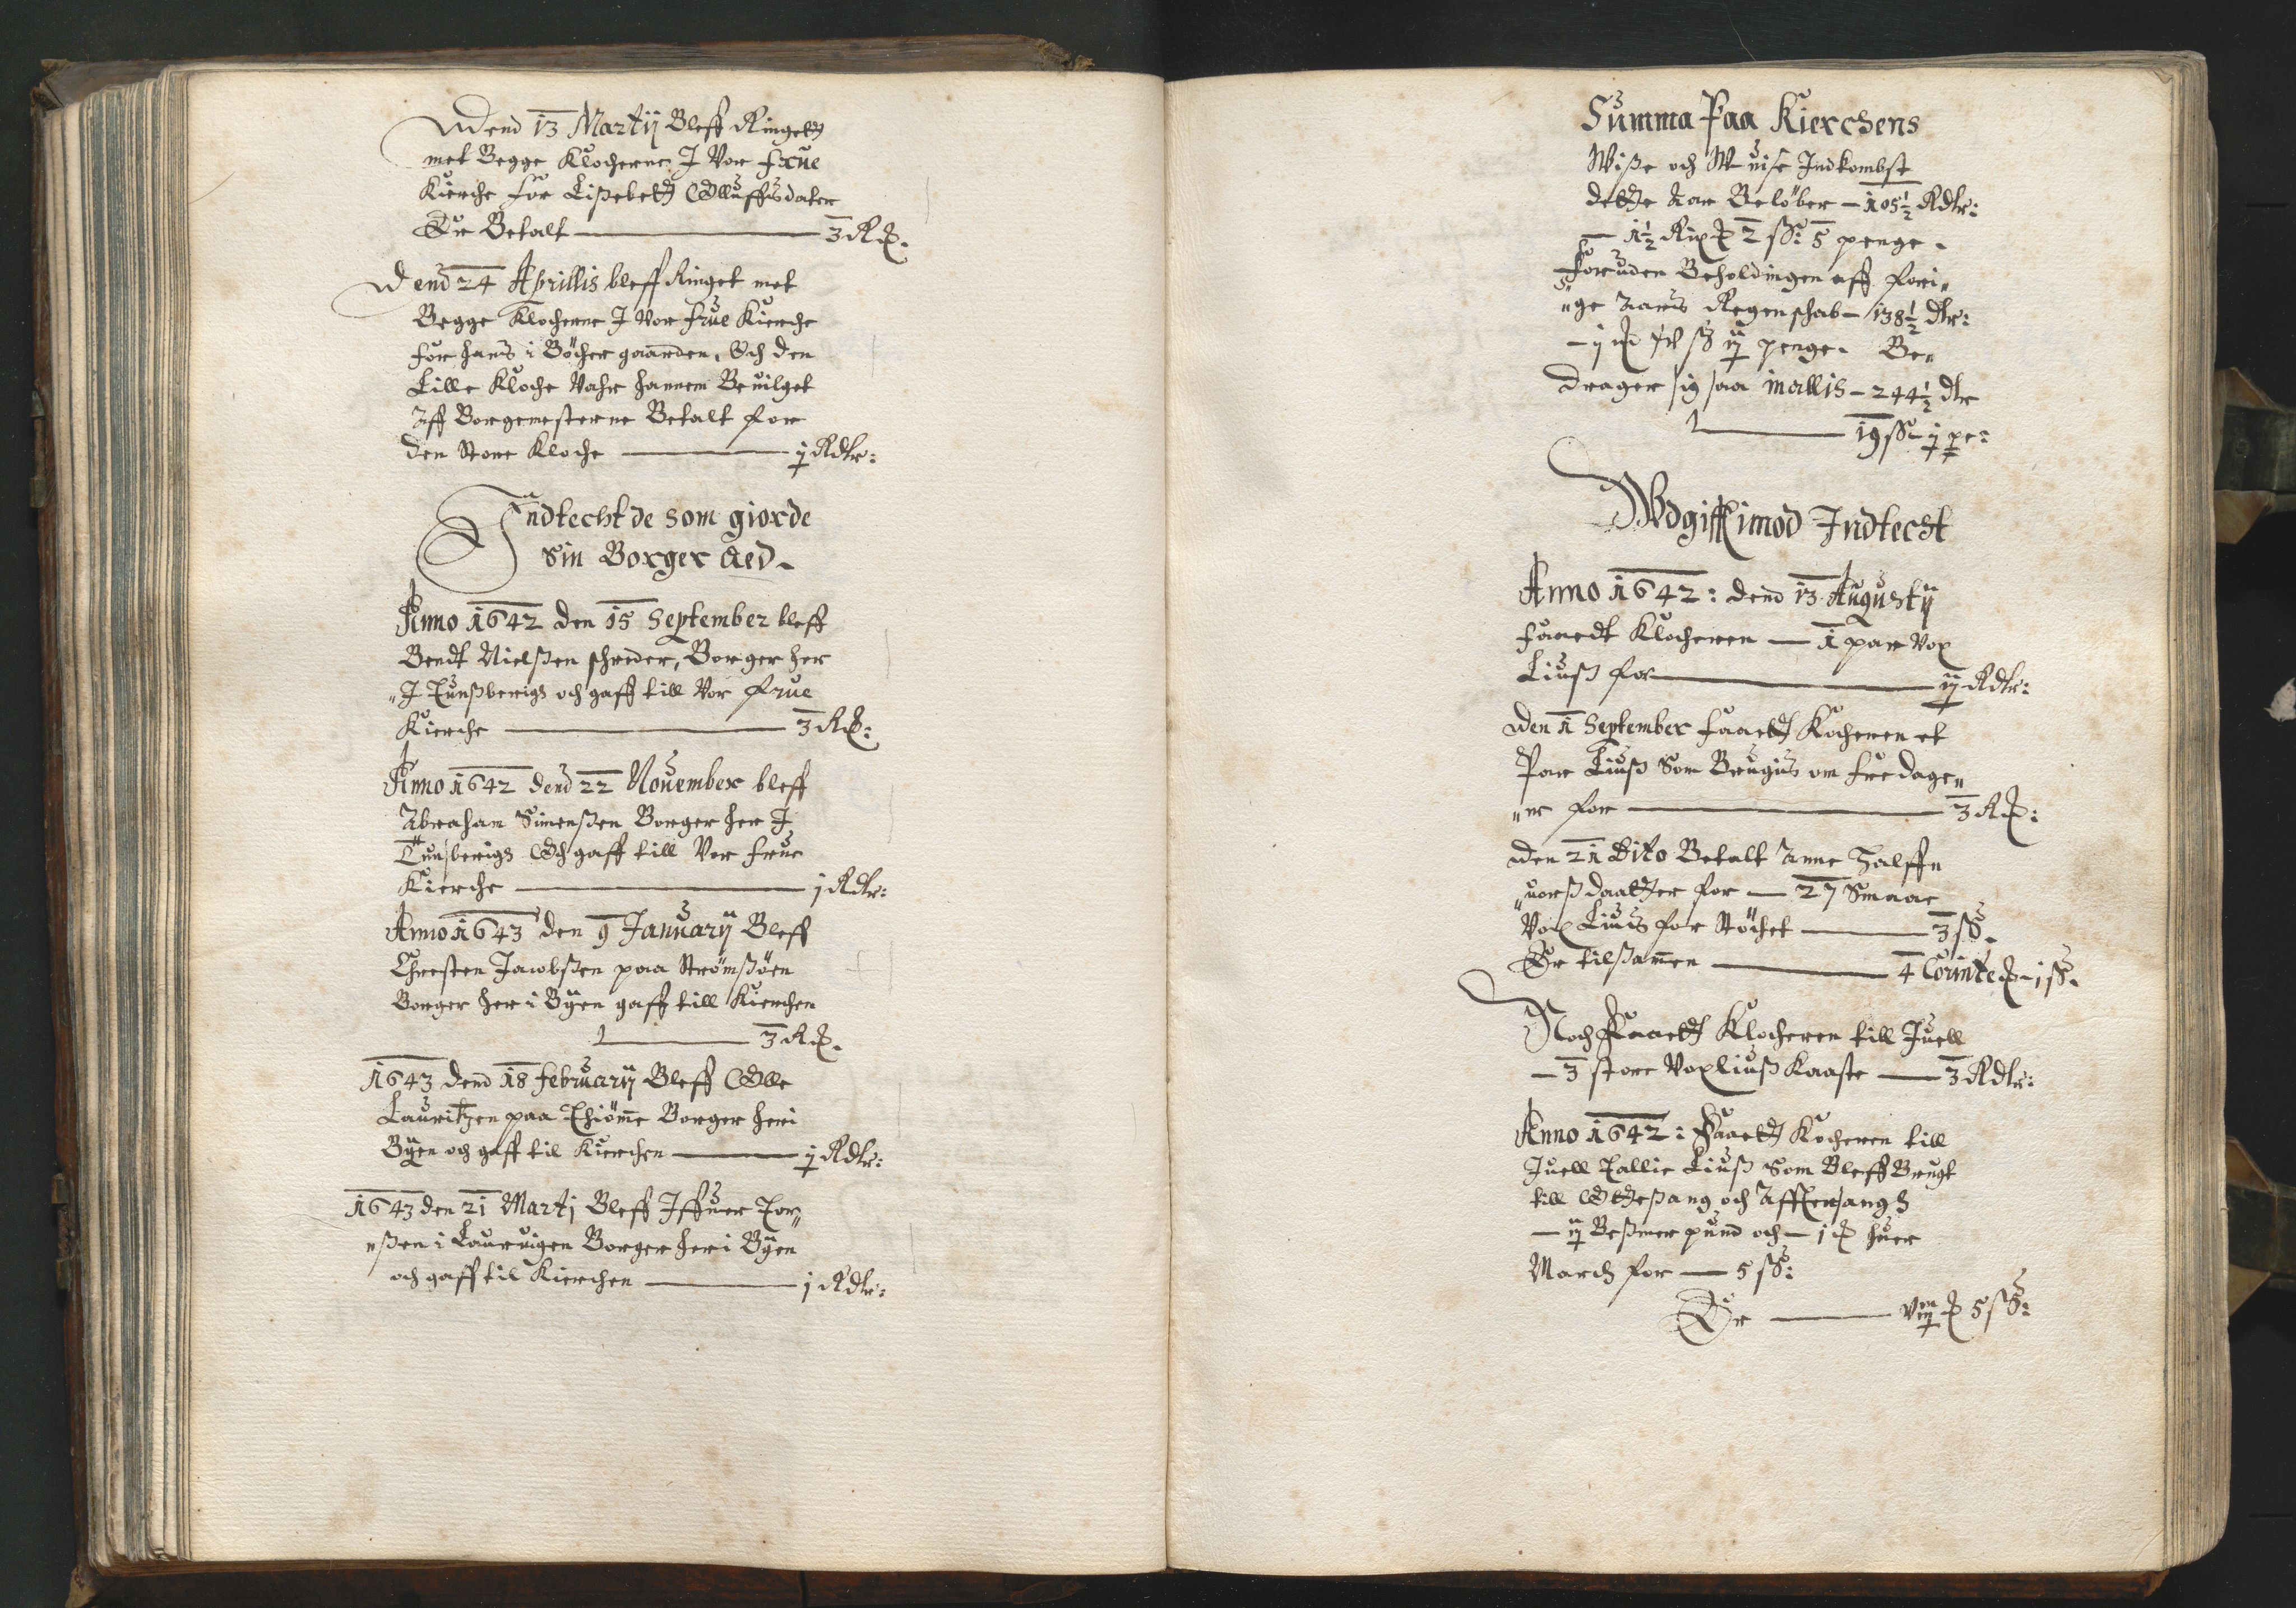 Dend 13 Martij Bleff Ringett
met Begge Klocherne J Vor frue
Kierche for Lißebett Olluffsdater
Er Betalt — 3 R
Dend 24 Aprillis bleff Ringet met
Begge Klocherne J Vor frue Kierche
for hans i Böcher gaarden, Och den
Lille Kloche Vahr hannem Beuilget
Aff Borgemesterne Betalt for
den Store Kloche — ij Rdlr:
Indtecht de som giorde
sin Borger aed.
Anno 1642 den 15 September bleff
Bendt Nielßen schreder, Borger her
J Tunßberig och gaff till Vor frue
Kierche — 3 R
Anno 1642 dend 22 Nouember bleff
Abraham Simenßen Borger her J
Tunsberig Och gaff till Vor frue
Kierche — j Rdlr:
Anno 1643 den 9 Januarij Bleff
Chresten Jacobßen paa Strömßöen
Borger her i Byen gaff till Kierchen
— 3 R
1643 dend 18 februarij Bleff Olle
Lauritzen paa Thiöme Borger heri
Byen och gaff til Kierchen — ij Rdlr:
1643 den 21 Martj Bleff Iffuer Tor„
„ßen i Lauruigen Borger heri Byen
och gaff til Kierchen — j Rdlr:
Summa Paa Kierchens
Wiße och W uise Indkombst
dette Aar Belöber — 105½ Rdlr:
— 1½ Rix 2 ß: 5 penge.
foruden Beholdingen aff fori„
„ge Aars Regenschab — 138½ dlr:
ß ij penge. Be„
drager sig saa inallis — 244½ dlr
— 19 ß — ij pe:
Wdgifft imod Indtecht
Anno 1642: dend 13 Augustij
faaedt Klocheren — 1 par Vox
Liuß for — ij Rdlr:
Den 1 September faaett Kocheren et
Par Liuß Som Brugis om fredage„
„ne for — 3 R
Den 21 Dito Betalt Anne Halffu
„uorß daatter for — 27 Smaae
Vox Liuis for Stöchet — 3 ß.
Er tilßamen — 4 Corinte — 1 ß.
Noch Faaett Klocheren till Juell
— 3 store Voxliuß Kaaste — 3 Rdlr:
Anno 1642: Faaett Kocheren till
Juell Tallie Liuß Som Bleff Brugt
till Otteßang och Afftensang
— ij Beßmer pund och — 1 huer
March for — 5 ß:
Er — 5 ß: